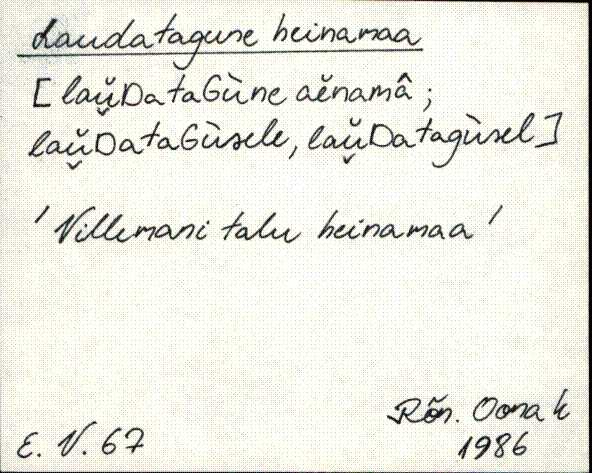 Laudatagune heinamaa
[laŭ̯DataGùne aĕnamâ;
laŭ̯DataGùsele, laŭ̯Datagùsel]
'Villemani talu heinamaa'
Rõn. Oona k
E. V. 67 1986